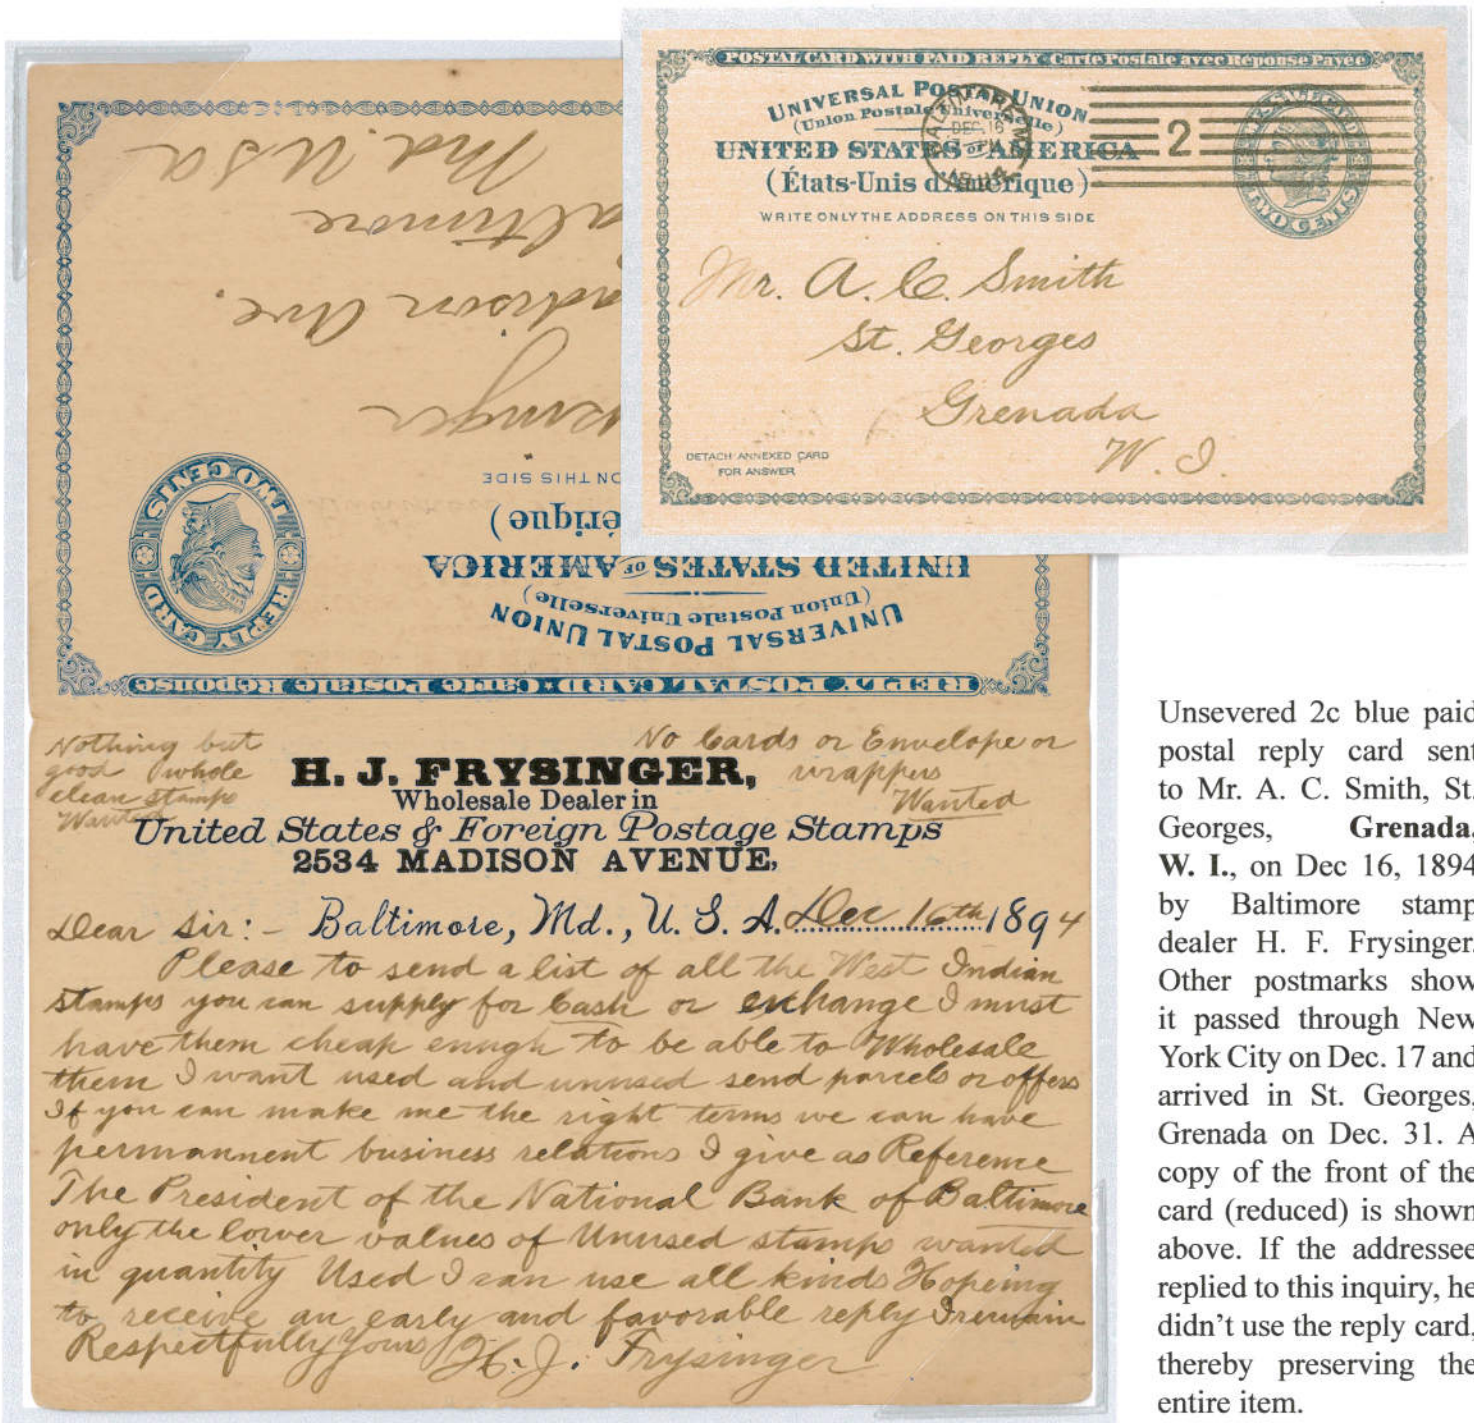 POSTAL CARD WITH PAID REPLY-Carte Postale avec Réponse Payée
UNIVERSAL POSTAL UNION
(Union Postale Universelle)
UNITED STATES OF AMERICA
(États-Unis d'Amérique)
WRITE ONLY THE ADDRESS ON THIS SIDE
DEC 16
2
TWO CENTS
Mr. A. C. Smith
St. Georges
Grenada
W. I.
DETACH ANNEXED CARD
FOR ANSWER
REPLY POSTAL CARD·Carte Postale Réponse
UNIVERSAL POSTAL UNION
(Union Postale Universelle)
UNITED STATES OF AMERICA
érique)
ON THIS SIDE
REPLY CARD
TWO CENTS
singer
adison Ave.
altimore
Md. USA
Nothing but
good whole
clean stamps
Wanted
No Cards or Envelope or
wrappers
Wanted
H. J. FRYSINGER,
Wholesale Dealer in
United States & Foreign Postage Stamps
2534 MADISON AVENUE,
Dear Sir:- Baltimore, Md., U. S. A. Dec 16th 1894
Please to send a list of all the West Indian
stamps you can supply for Cash or exchange I must
have them cheap enugh to be able to Wholesale
them I want used and unused send parcels or offers
If you can make me the right terms we can have
permannent business relations I give as Reference
The President of the National Bank of Baltimore
only the lower values of Unused stamps wanted
in quantity Used I can use all kinds Hopeing
to receive an early and favorable reply I remain
Respectfully Yours H. J. Frysinger
Unsevered 2c blue paid
postal reply card sent
to Mr. A. C. Smith, St.
Georges, Grenada,
W. I., on Dec 16, 1894
by Baltimore stamp
dealer H. F. Frysinger.
Other postmarks show
it passed through New
York City on Dec. 17 and
arrived in St. Georges,
Grenada on Dec. 31. A
copy of the front of the
card (reduced) is shown
above. If the addressee
replied to this inquiry, he
didn't use the reply card,
thereby preserving the
entire item.